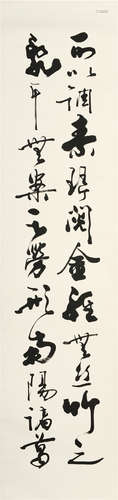 可以調素琴閱金經無絲竹之
亂耳無案之勞形南陽諸葛